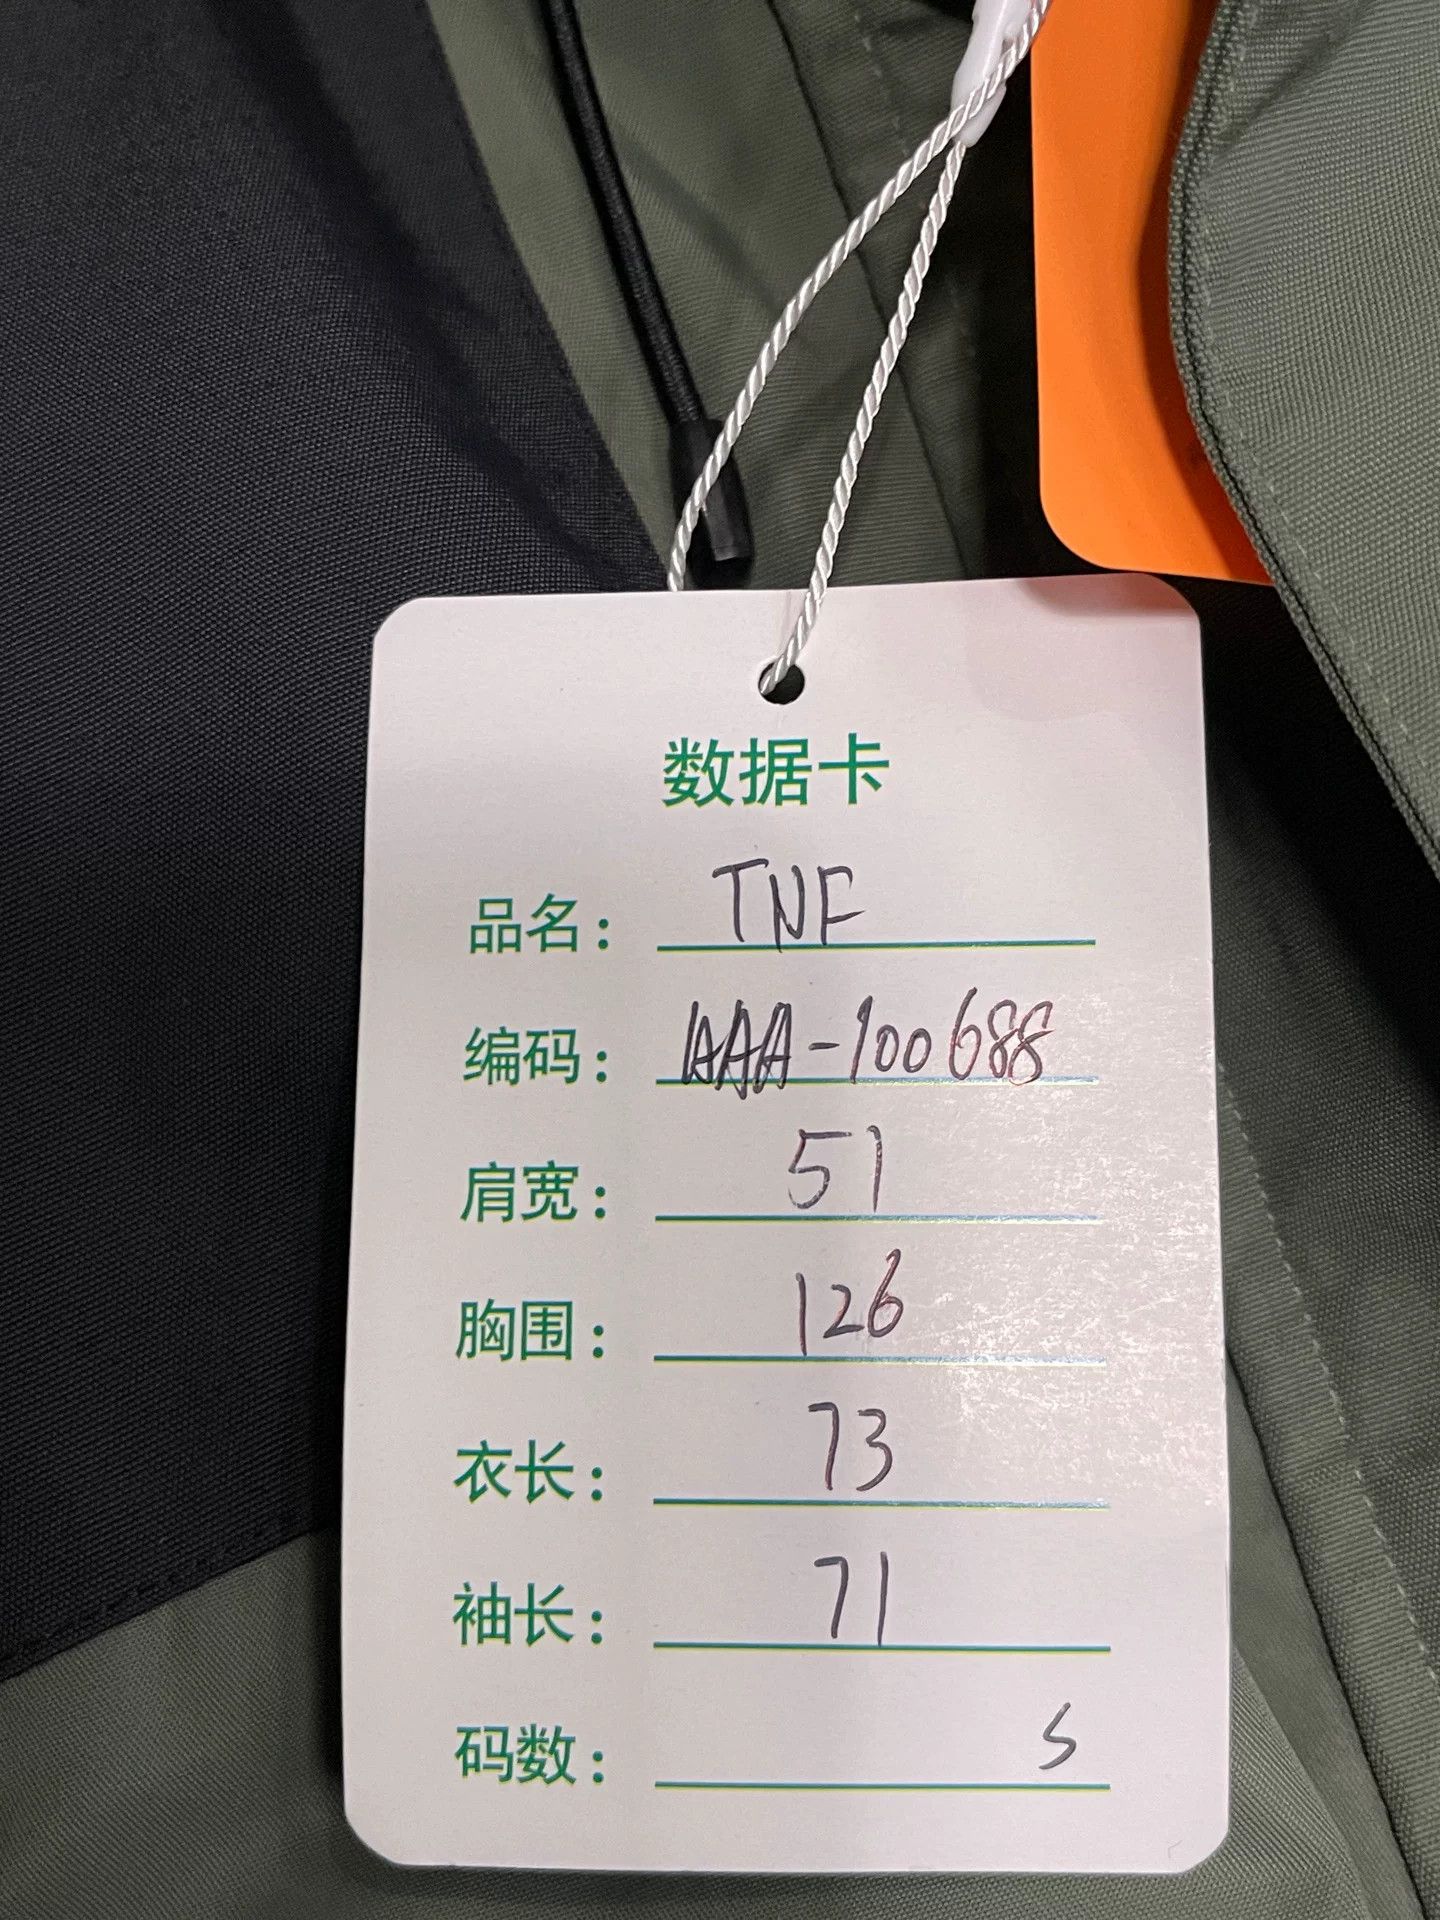 数据卡
品名: TNF
编码: AAA-100688
肩宽: 51
胸围: 126
衣长: 73
袖长: 71
码数: S